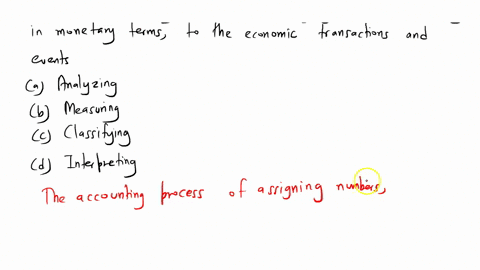 in monetary terms, to the economic transactions and
events
(a) Analyzing
(b) Measuring
(c) Classifying
(d) Interpreting
The accounting process of assigning numbers,